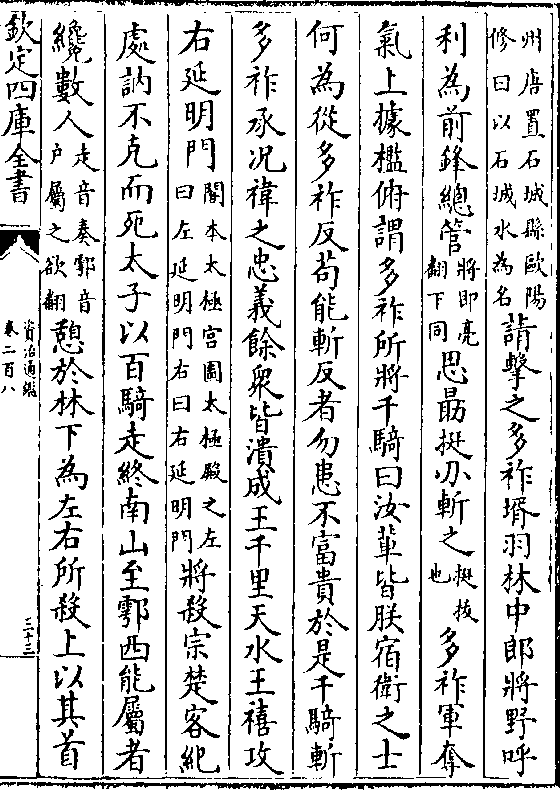 州唐置石城縣歐陽
修曰以石城水為名
請擊之多祚壻羽林中郎將野呼
利為前鋒總管
將即亮
翻下同
思朂挺刃斬之
挺拔
也
多祚軍奪
氣上據檻俯謂多祚所將千騎曰汝輩皆朕宿衛之士
何為從多祚反苟能斬反者勿患不富貴於是千騎斬
多祚承况禕之忠義餘衆皆潰成王千里天水王禧攻
右延明門
閣本太極宫圖太極殿之左
曰左延明門右曰右延明門
將殺宗楚客紀
處訥不克而死太子以百騎走終南山至鄠西能屬者
纔數人
走音奏鄠音
户屬之欲翻
憩於林下為左右所殺上以其首
欽定四庫全書
資治通鑑
卷二百八
三十三